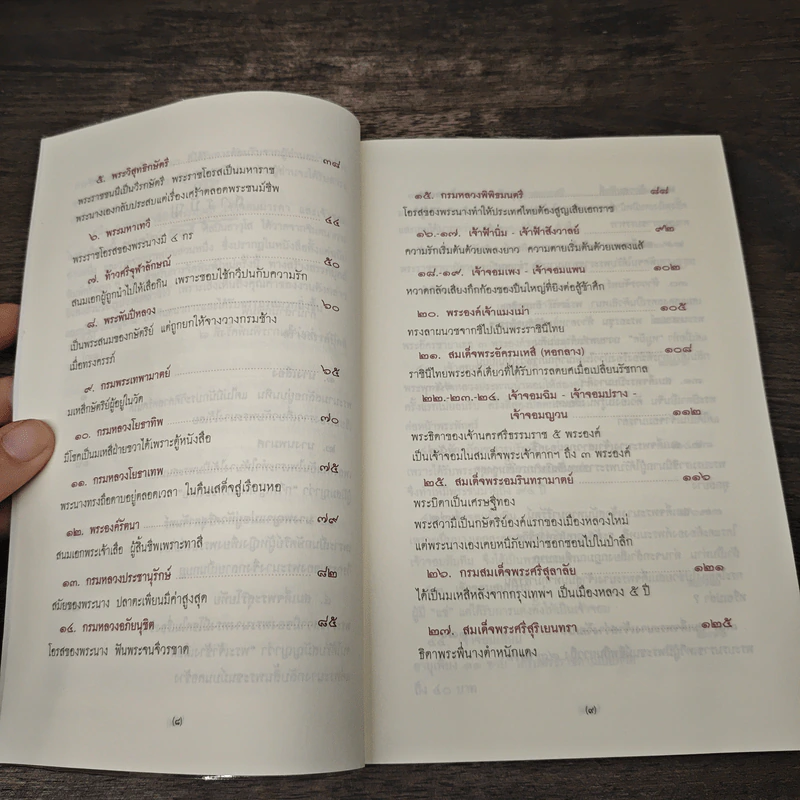 ๕. พระวิสุทธิกษัตรี ๓๘
พระราชชนนีเป็นวีรกษัตรี พระราชโอรสเป็นมหาราช
พระนางเองกลับประสบแต่เรื่องเศร้าตลอดพระชนม์ชีพ
๖. พระมหาเทวี ๔๔
พระราชโอรสของพระนางมี ๔ กร
๗. ท้าวศรีจุฬาลักษณ์ ๕๐
สนมเอกผู้ถูกนำไปให้เสือกิน เพราะชอบใช้ทวีปนกับความรัก
๘. พระพันปีหลวง ๖๐
เป็นพระสนมของกษัตริย์ แต่ถูกยกให้จางวางกรมช้าง
เมื่อทรงครรภ์
๙. กรมพระเทพามาตย์ ๖๕
มเหสีกษัตริย์ผู้อยู่ในวัด
๑๐. กรมหลวงโยธาทิพ ๗๐
มีโชคเป็นมเหสีฝ่ายขวาได้เพราะตู้หนังสือ
๑๑. กรมหลวงโยธาเทพ ๗๕
พระนางทรงถือดาบอยู่ตลอดเวลา ในคืนเสด็จสู่เรือนหอ
๑๒. พระองค์รัตนา ๗๙
สนมเอกพระเจ้าเสือ ผู้สิ้นชีพเพราะทาสี
๑๓. กรมหลวงประชานุรักษ์ ๘๒
สมัยของพระนาง ปลาตะเพียนมีค่าสูงสุด
๑๔. กรมหลวงอภัยนุชิต ๘๕
โอรสของพระนาง ฟันพระจนจีวรขาด
(๘)
๑๕. กรมหลวงพิพิธมนตรี ๘๘
โอรสของพระนางทำให้ประเทศไทยต้องสูญเสียเอกราช
๑๖.-๑๗. เจ้าฟ้านิ่ม - เจ้าฟ้าสังวาลย์ ๙๒
ความรักเริ่มต้นด้วยเพลงยาว ความตายเริ่มต้นด้วยเพลงแส้
๑๘.-๑๙. เจ้าจอมเพง - เจ้าจอมแพน ๑๐๒
หวาดกลัวเสียงกึกก้องของปืนใหญ่ที่ยิงต่อสู้ข้าศึก
๒๐. พระองค์เจ้าแมงเม่า ๑๐๕
ทรงลาผนวชจากชีไปเป็นพระราชินีไทย
๒๑. สมเด็จพระอัครมเหสี (หอกลาง) ๑๐๘
ราชินีไทยพระองค์เดียวที่ได้รับการลดยศเมื่อเปลี่ยนรัชกาล
๒๒.-๒๓.-๒๔. เจ้าจอมฉิม - เจ้าจอมปราง -
เจ้าจอมญวน ๑๑๒
พระธิดาของเจ้านครศรีธรรมราช ๕ พระองค์
เป็นเจ้าจอมในสมเด็จพระเจ้าตากฯ ถึง ๓ พระองค์
๒๕. สมเด็จพระอมรินทรามาตย์ ๑๑๖
พระบิดาเป็นเศรษฐีทอง
พระสวามีเป็นกษัตริย์องค์แรกของเมืองหลวงใหม่
แต่พระนางเองเคยหนีภัยพม่าซอกซอนไปในป่าลึก
๒๖. กรมสมเด็จพระศรีสุลาลัย ๑๒๑
ได้เป็นมเหสีหลังจากกรุงเทพฯ เป็นเมืองหลวง ๕ ปี
๒๗. สมเด็จพระศรีสุริเยนทรา ๑๒๕
ธิดาพระพี่นางตำหนักแดง
(๙)